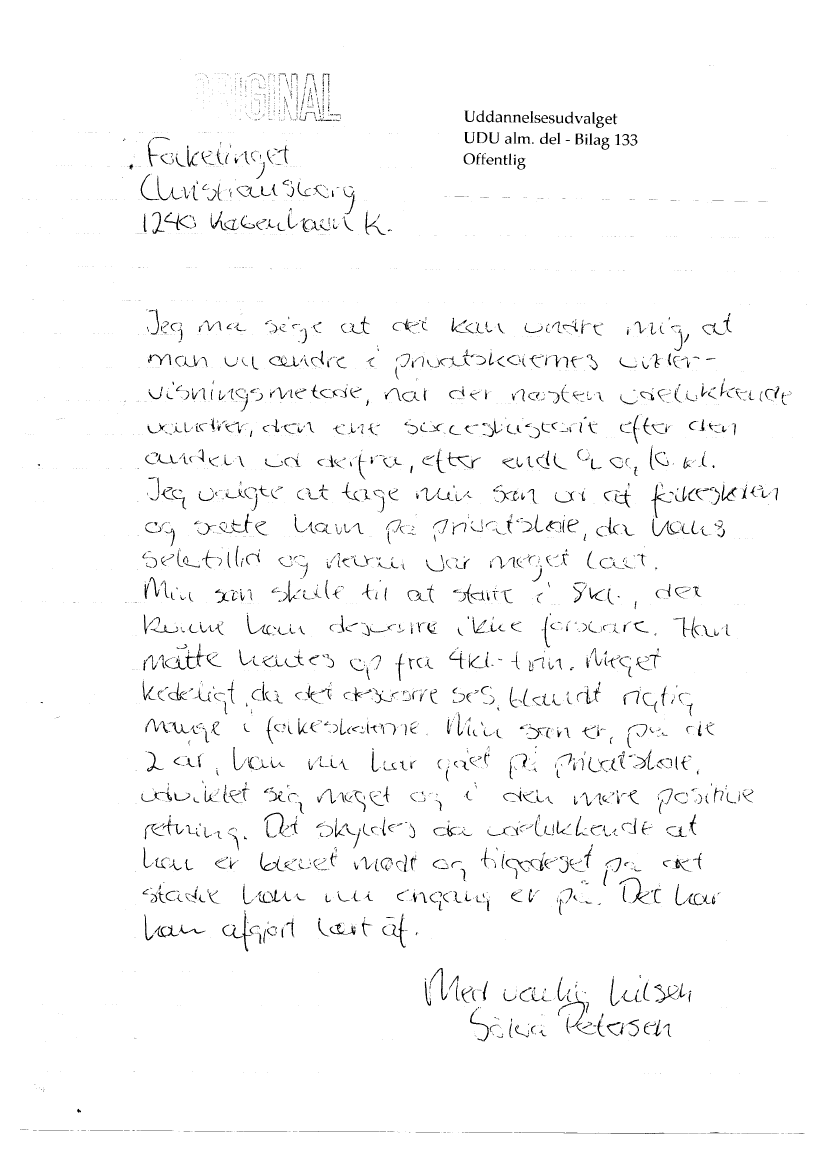 ORIGINAL
Uddannelsesudvalget
UDU alm. del - Bilag 133
Offentlig
Folketinget
Christiansborg
1240 København K.
Jeg må sige at det kan undre mig, at
man vil ændre i privatskolernes under-
visningsmetode, når der næsten udelukkende
vandrer, den ene succeshistorie efter den
anden ud derfra, efter endt 9. og 10. kl.
Jeg valgte at tage min søn ud af folkeskolen
og sætte ham på privatskole, da hans
selvtillid og niveau var meget lavt.
Min søn skulle til at starte i 8kl., det
kunne han desværre ikke forsvare. Han
måtte hentes op fra 4kl.-trin. Meget
kedeligt, da det desværre ses, blandt rigtig
mange i folkeskolerne. Min søn er, på de
2 år, han nu har gået på privatskole,
udviklet sig meget og i den mere positive
retning. Det skyldes da udelukkende at
han er blevet mødt og tilgodeset på det
stadie han nu engang er på. Det har
han afgjort lært af.
Med venlig hilsen
Petersen